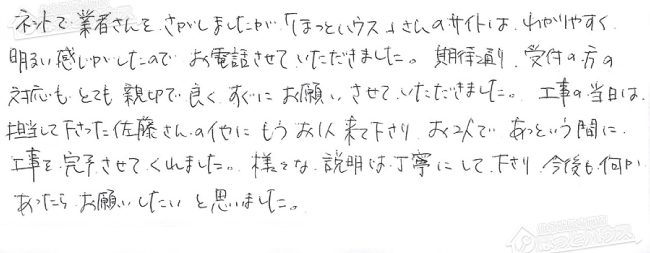 ネットで業者さんを、さがしましたが「ほっとハウス」さんのサイトは、わかりやすく
明るい感じがしたので お電話させていただきました。期待通り、受付の方の
対応も とても 親切で 良く、すぐに お願いさせていただきました。工事の当日は、
担当して下さった佐藤さんの他に もうお1人来て下さり、お2人で あっという間に
工事を完了させてくれました。様々な説明は丁寧にして下さり 今後も何か
あったら お願いしたい と思いました。
ほっとハウス